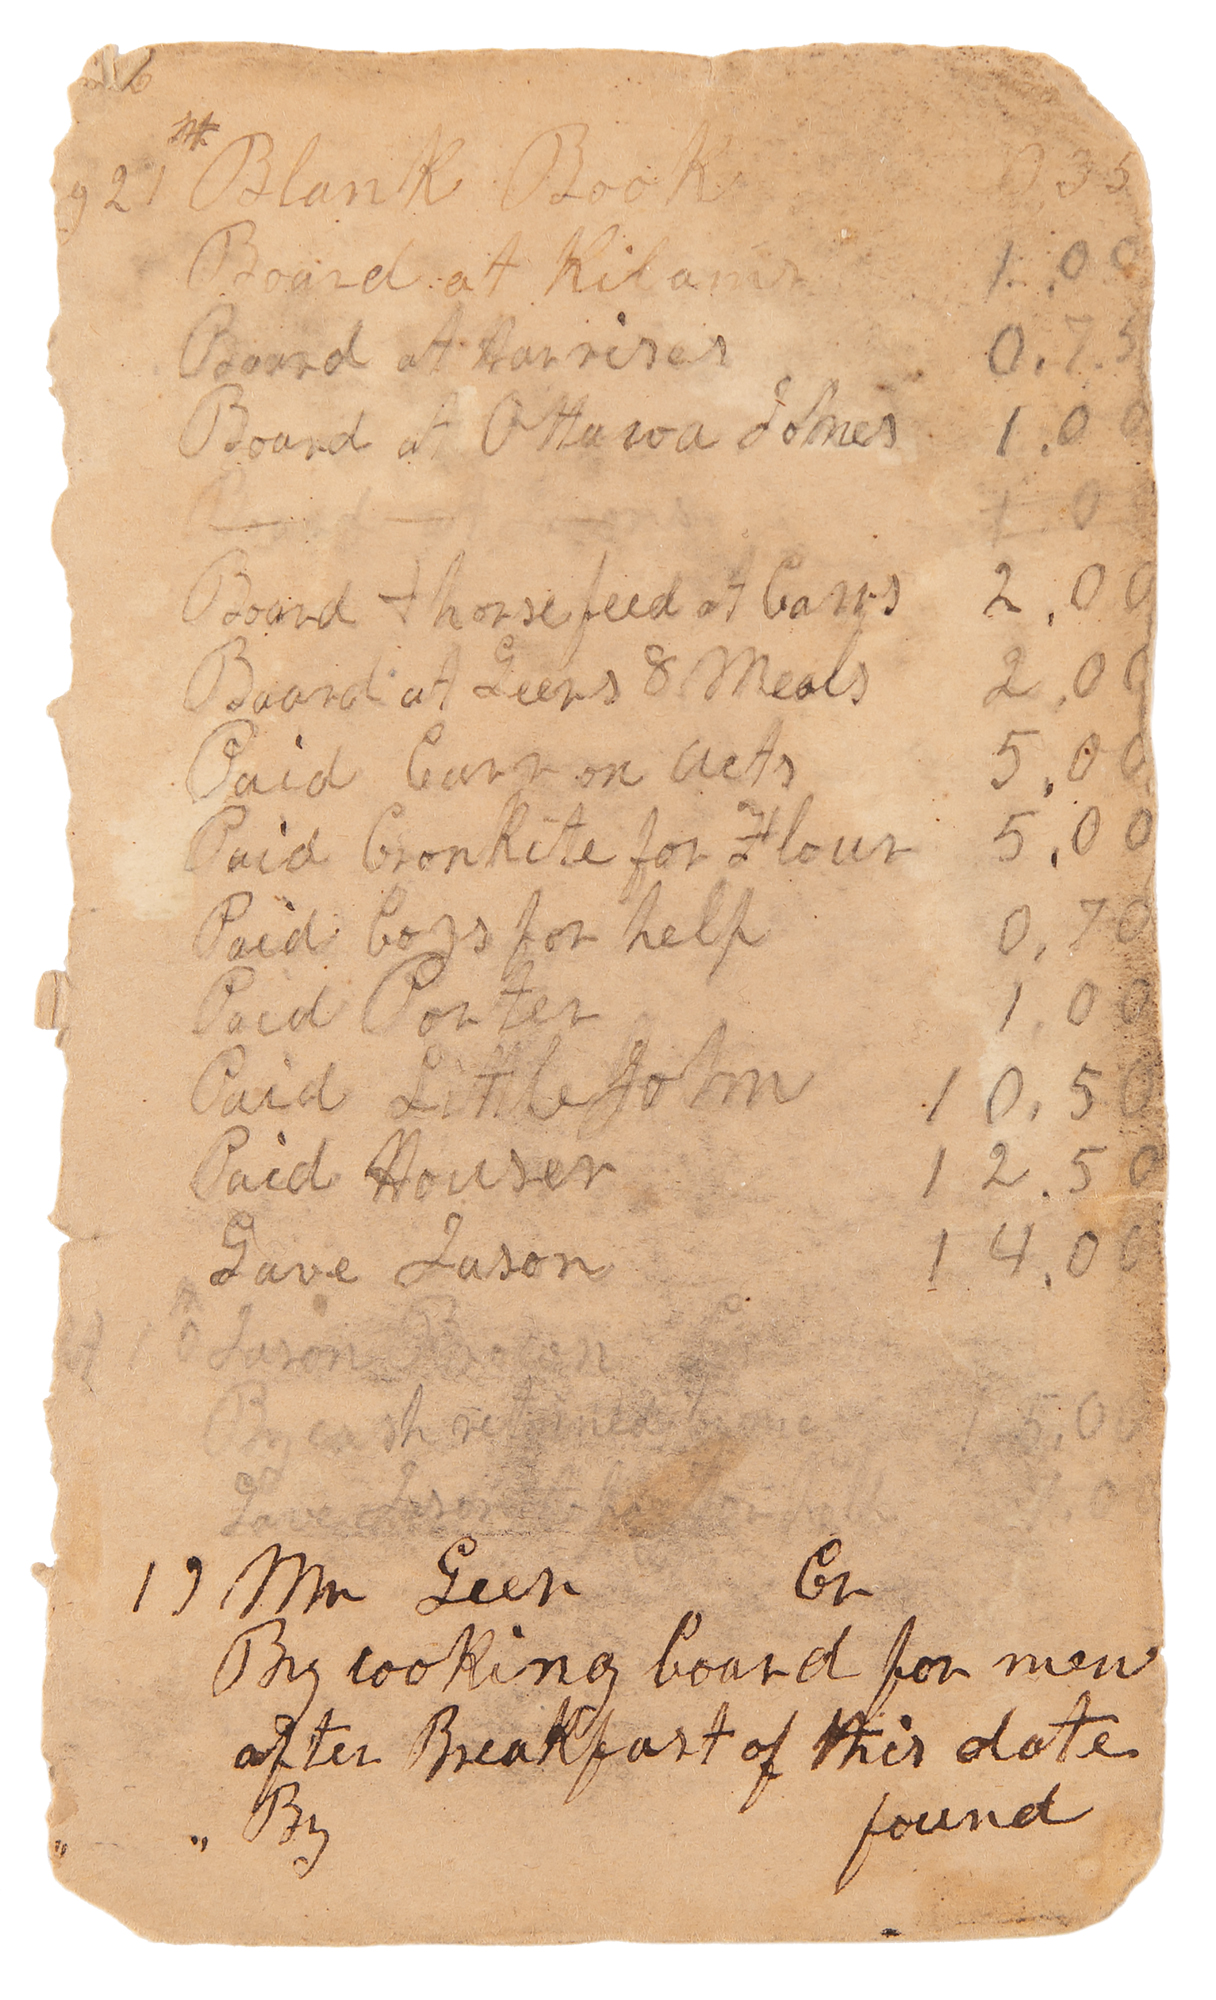 g 21st Blank Book 0.35
Board at Kilams 1.00
Board at Harrises 0.75
Board at Ottawa Jones 1.00
1 0
Board & horse feed at Carrs 2.00
Board at Geers 8 Meals 2.00
Paid Carr on acts 5.00
Paid Cronkite for Flour 5.00
Paid boys for help 0.70
Paid Porter 1.00
Paid Little John 10.50
Paid Houser 12.50
Gave Jason 14.00
Jason Brown
By cash returned 15.00
Gave Jason to
19 Mr Geer Cr
By cooking board for men
after Breakfast of this date
" " By found